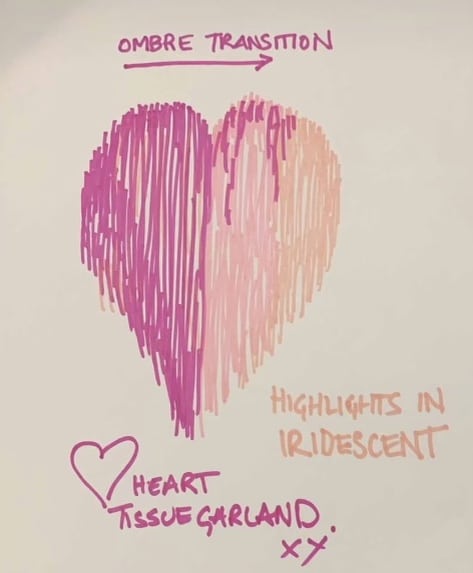 OMBRE TRANSITION
HIGHLIGHTS IN
IRIDESCENT
HEART
TISSUE GARLAND.
xy